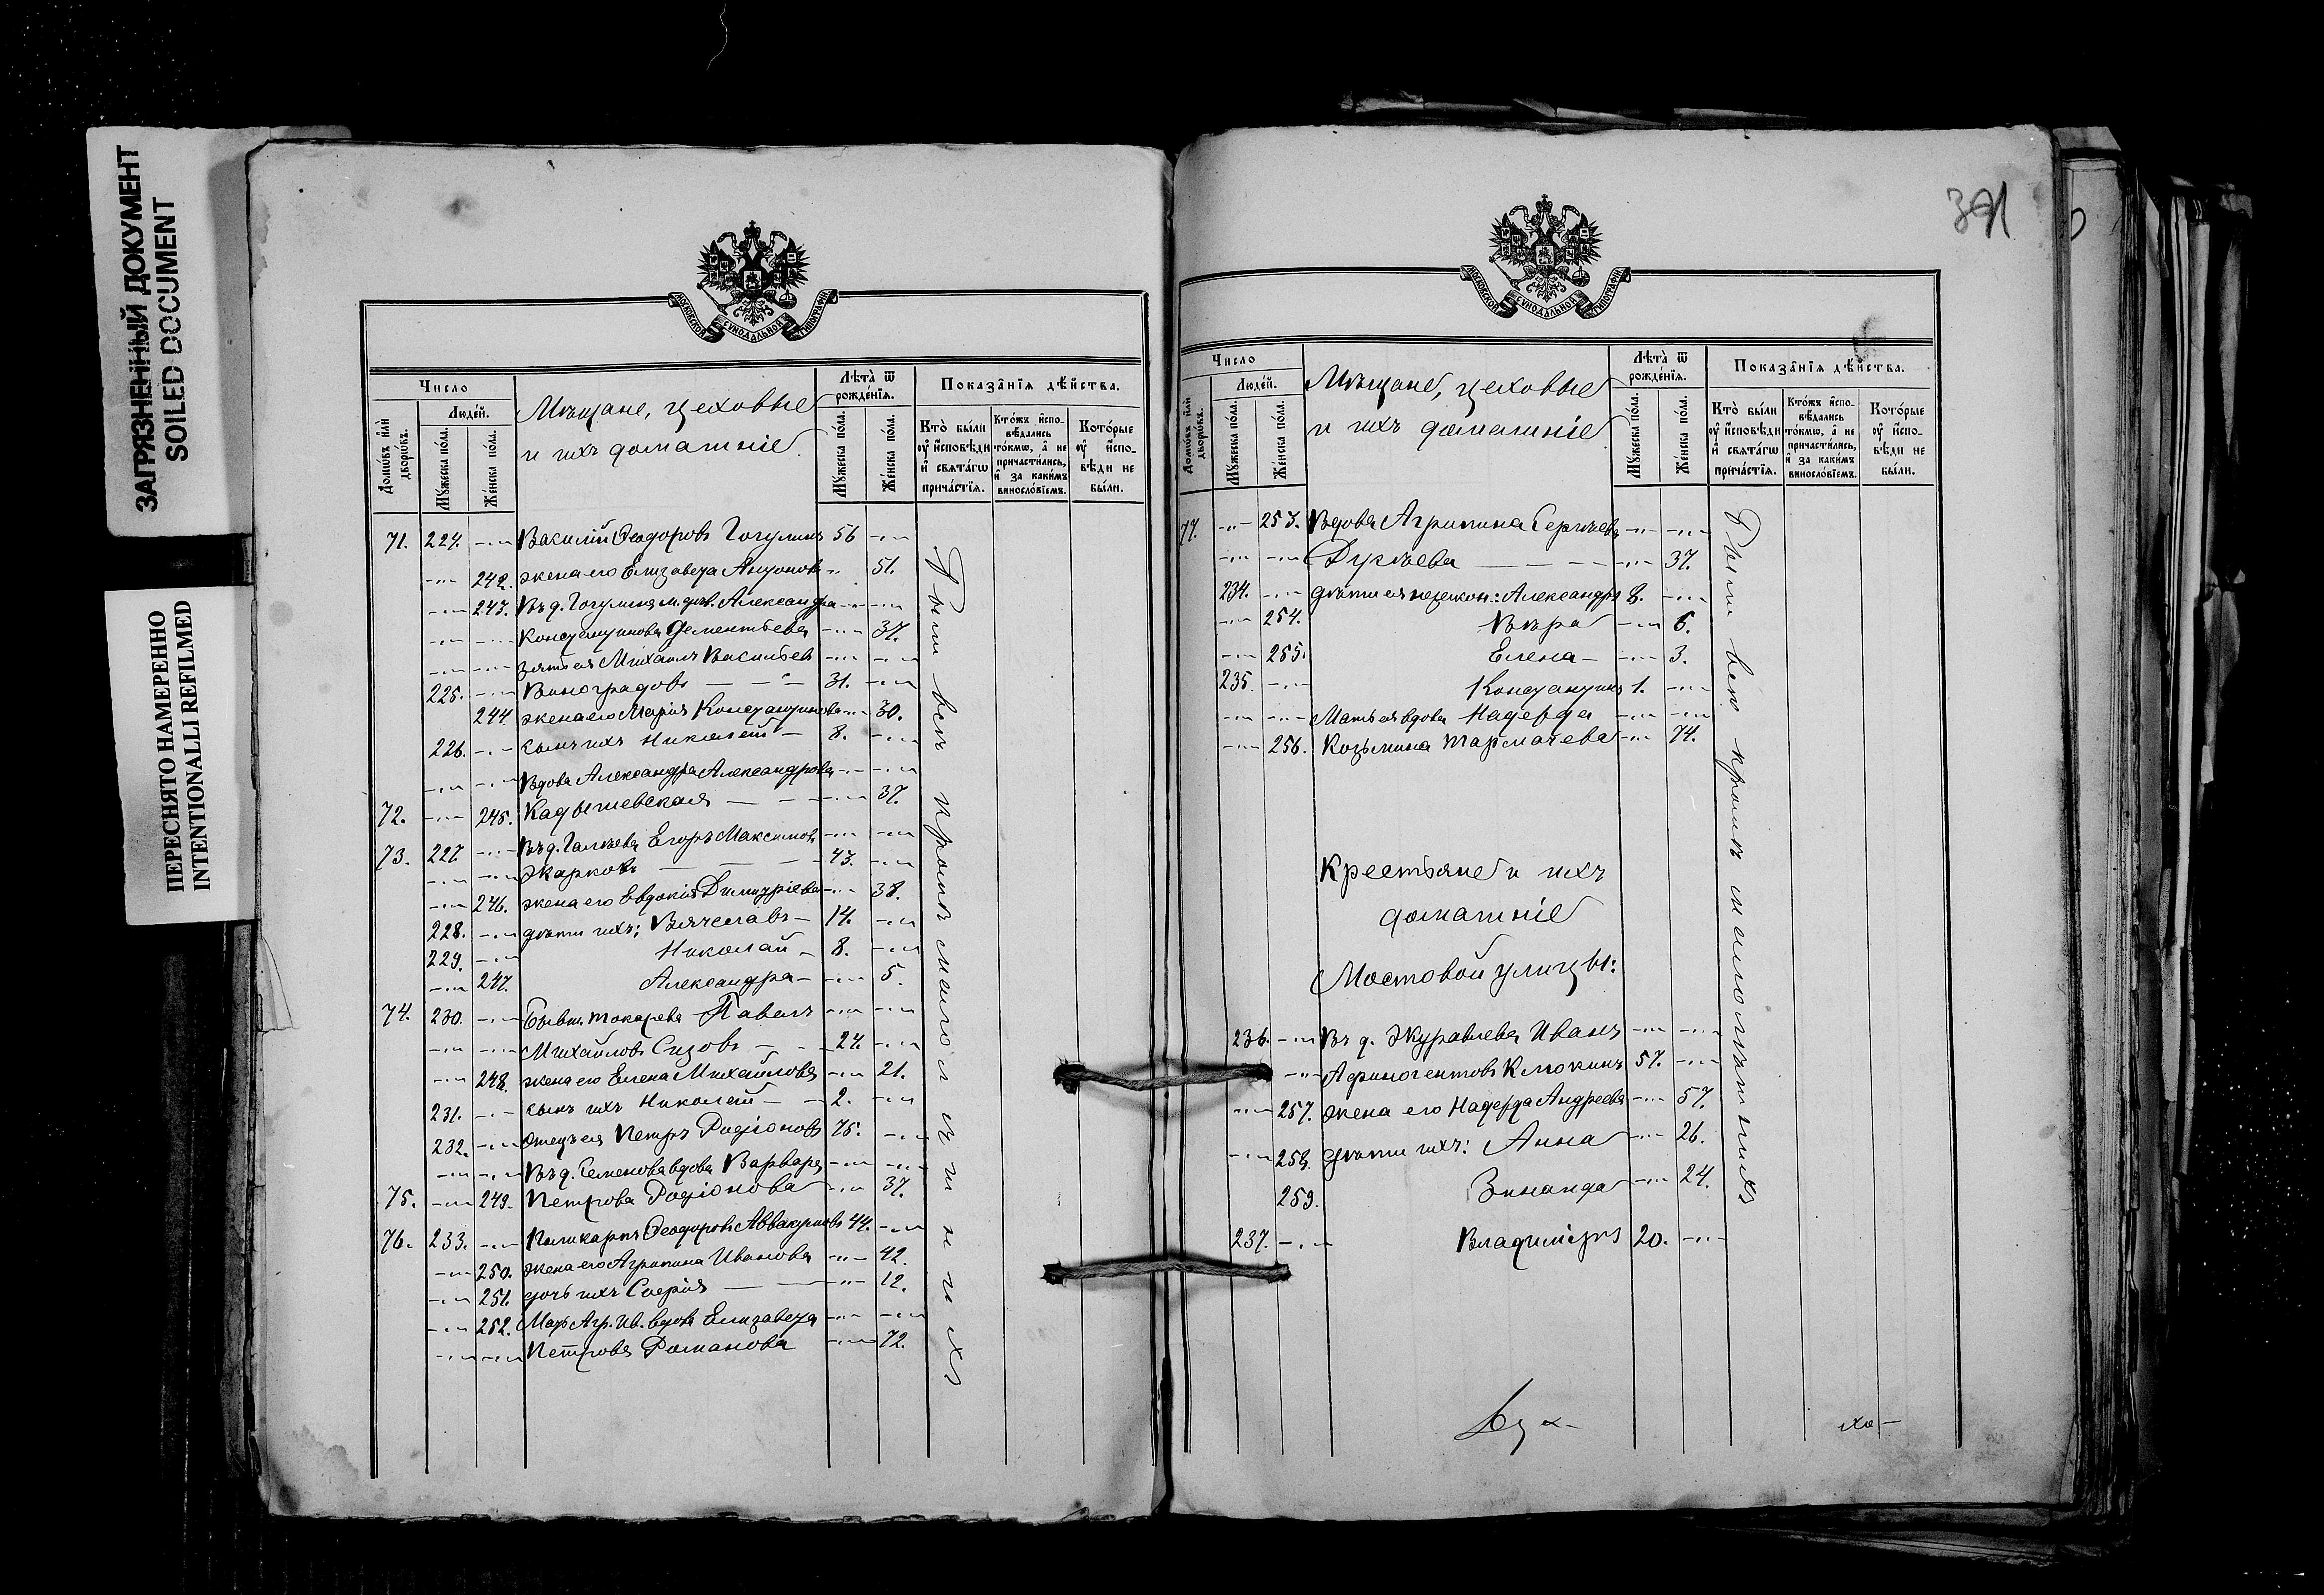 ЗАГРЯЗНЕННЫЙ ДОКУМЕНТ
SOILED DOCUMENT
ПЕРЕСНЯТО НАМЕРЕННО
INTENTIONALLI REFILMED
МОСКОВСКОЙ СѴНОДАЛЬНОЙ ТИПОГРАФІИ
Число
Людей.
Домѡвъ или дворѡвъ.
Мужеска пола.
Женска пола.
Мѣщане, цеховые
и ихъ домашніе
Лѣта ѿ рожденія.
Мужеска пола.
Женска пола.
Показанія дѣйства.
Кто были оу исповѣди и святагѡ причастія.
Ктожъ исповѣдались токмѡ, а не причастились, и за какимъ винословіемъ.
Которые оу исповѣди не были.
71. 224. -"- Василій Ѳеодоровъ Гогулинъ 56 -"-
-"- 242. жена его Елизавета Антонова -"- 51.
-"- 243. Въ д. Гогулиня м. дѣв. Александра -"- -"-
-"- -"- Константинова Дементьева -"- 37.
-"- -"- зять ея Михаилъ Васильев -"- -"-
225. -"- Виноградовъ - -"- 31. -"-
244. жена его Марія Константинова -"- 30.
226. -"- сынъ ихъ Николай - 8. -"-
-"- -"- Вдова Александра Александрова -"- -"-
72. -"- 245. Кадышевская - - -"- 37.
73. 227. -"- Въ д. Галѣева Егоръ Максимовъ -"- -"-
-"- -"- Жарковъ - - 43. -"-
-"- 246. жена его Евдокія Димитріева -"- 38.
228. -"- дѣти ихъ: Вячеславъ - 14. -"-
229. -"- Николай - 8. -"-
-"- 247. Александра - -"- 5.
74. 230. -"- Бывш. Токарева Павелъ -"- -"-
-"- -"- Михайловъ Сизовъ - - 24. -"-
-"- 248. жена его Елена Михайлова -"- 21.
231. -"- сынъ ихъ Николай - - 2. -"-
232. -"- Отецъ ея Петръ Родіоновъ 75. -"-
-"- -"- Въ д. Семенова вдова Варвара -"- -"-
75. -"- 249. Петрова Родіонова -"- 37.
76. 233. -"- Поликарпъ Ѳеодоровъ Аввакумовъ 44. -"-
-"- 250. жена его Агрипина Иванова -"- 42.
-"- 251. дочь ихъ Софія - - -"- 12.
-"- 252. Мат. Агр. Ив. вдова Елизавета -"- -"-
-"- -"- Петрова Романова -"- 72.
Были всѣ кромѣ малолѣтнихъ
МОСКОВСКОЙ СѴНОДАЛЬНОЙ ТИПОГРАФІИ
Число
Людей.
Домѡвъ или дворѡвъ.
Мужеска пола.
Женска пола.
Мѣщане, цеховые
и ихъ домашніе
Лѣта ѿ рожденія.
Мужеска пола.
Женска пола.
Показанія дѣйства.
Кто были оу исповѣди и святагѡ причастія.
Ктожъ исповѣдались токмѡ, а не причастились, и за какимъ винословіемъ.
Которые оу исповѣди не были.
77. -"- 253. Вдова Агрипина Сергѣева -"- -"-
-"- -"- - - - -"- 37.
234. -"- дѣти ея незакон.: Александръ 8. -"-
-"- 254. Вѣра -"- 6.
-"- 255. Елена - -"- 3.
235. -"- Константинъ 1. -"-
-"- -"- Мать ея вдова Надежда -"- -"-
-"- 256. Козьмина Тармачева -"- 74.
Крестьяне и ихъ
домашніе
Мостовой улицы:
236. -"- Въ д. Журавлева Иванъ -"- -"-
-"- Афиногентовъ Клюкинъ 57. -"-
-"- 257. жена его Надежда Андреева -"- 57.
-"- 258. дѣти ихъ: Анна -"- 26.
259. Зинаида -"- 24.
237. -"- Владиміръ 20. -"-
Были всѣ кромѣ малолѣтнихъ